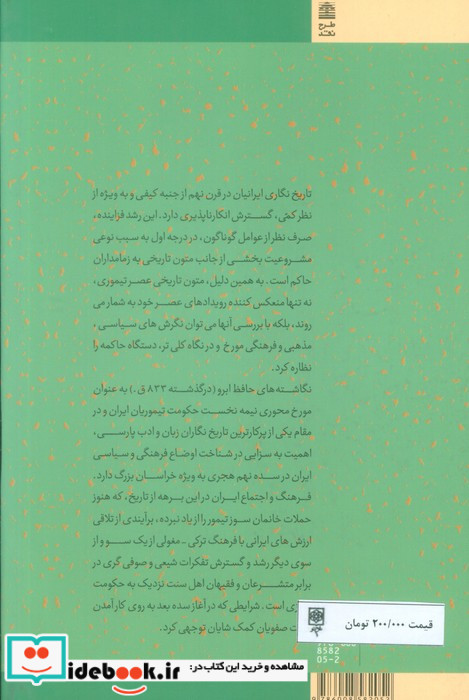 طرح
نقد
تاریخ نگاری ایرانیان در قرن نهم از جنبه کیفی و به ویژه از
نظر کمّی، گسترش انکارناپذیری دارد. این رشد فزاینده،
صرف نظر از عوامل گوناگون، در درجه اول به سبب نوعی
مشروعیت بخشی از جانب متون تاریخی به زمامداران
حاکم است. به همین دلیل، متون تاریخی عصر تیموری،
نه تنها منعکس کننده رویدادهای عصر خود به شمار می
روند، بلکه با بررسی آنها می توان نگرش های سیاسی،
مذهبی و فرهنگی مورخ و در نگاه کلی تر، دستگاه حاکمه را
نظاره کرد.
نگاشته های حافظ ابرو (درگذشته ۸۳۳ ق.) به عنوان
مورخ محوری نیمه نخست حکومت تیموریان ایران و در
مقام یکی از پرکارترین تاریخ نگاران زبان و ادب پارسی،
اهمیت به سزایی در شناخت اوضاع فرهنگی و سیاسی
ایران در سده نهم هجری به ویژه خراسان بزرگ دارد.
فرهنگ و اجتماع ایران در این برهه از تاریخ، که هنوز
حملات خانمان سوز تیمور را از یاد نبرده، برآیندی از تلاقی
ارزش های ایرانی با فرهنگ ترکی - مغولی از یک سو و از
سوی دیگر رشد و گسترش تفکرات شیعی و صوفی گری در
برابر متشرعان و فقیهان اهل سنت نزدیک به حکومت
است. شرایطی که در آغاز سده بعد به روی کار آمدن
صفویان کمک شایان توجهی کرد.
قیمت ۲۰۰/۰۰۰ تومان
8582
05-2
9786008582052
مشاهده و خرید این کتاب در:
idebook.ir